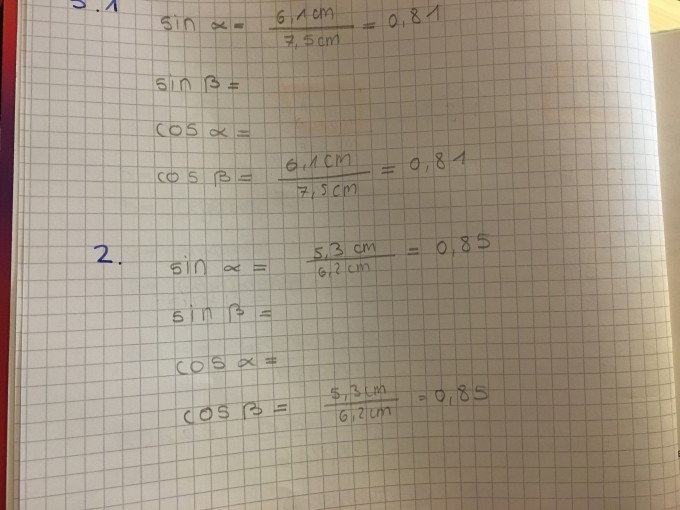 5.1
sin α = 6,1cm / 7,5cm = 0,81
sin β =
cos α =
cos β = 6,1cm / 7,5cm = 0,81
2.
sin α = 5,3 cm / 6,2cm = 0,85
sin β =
cos α =
cos β = 5,3cm / 6,2cm = 0,85